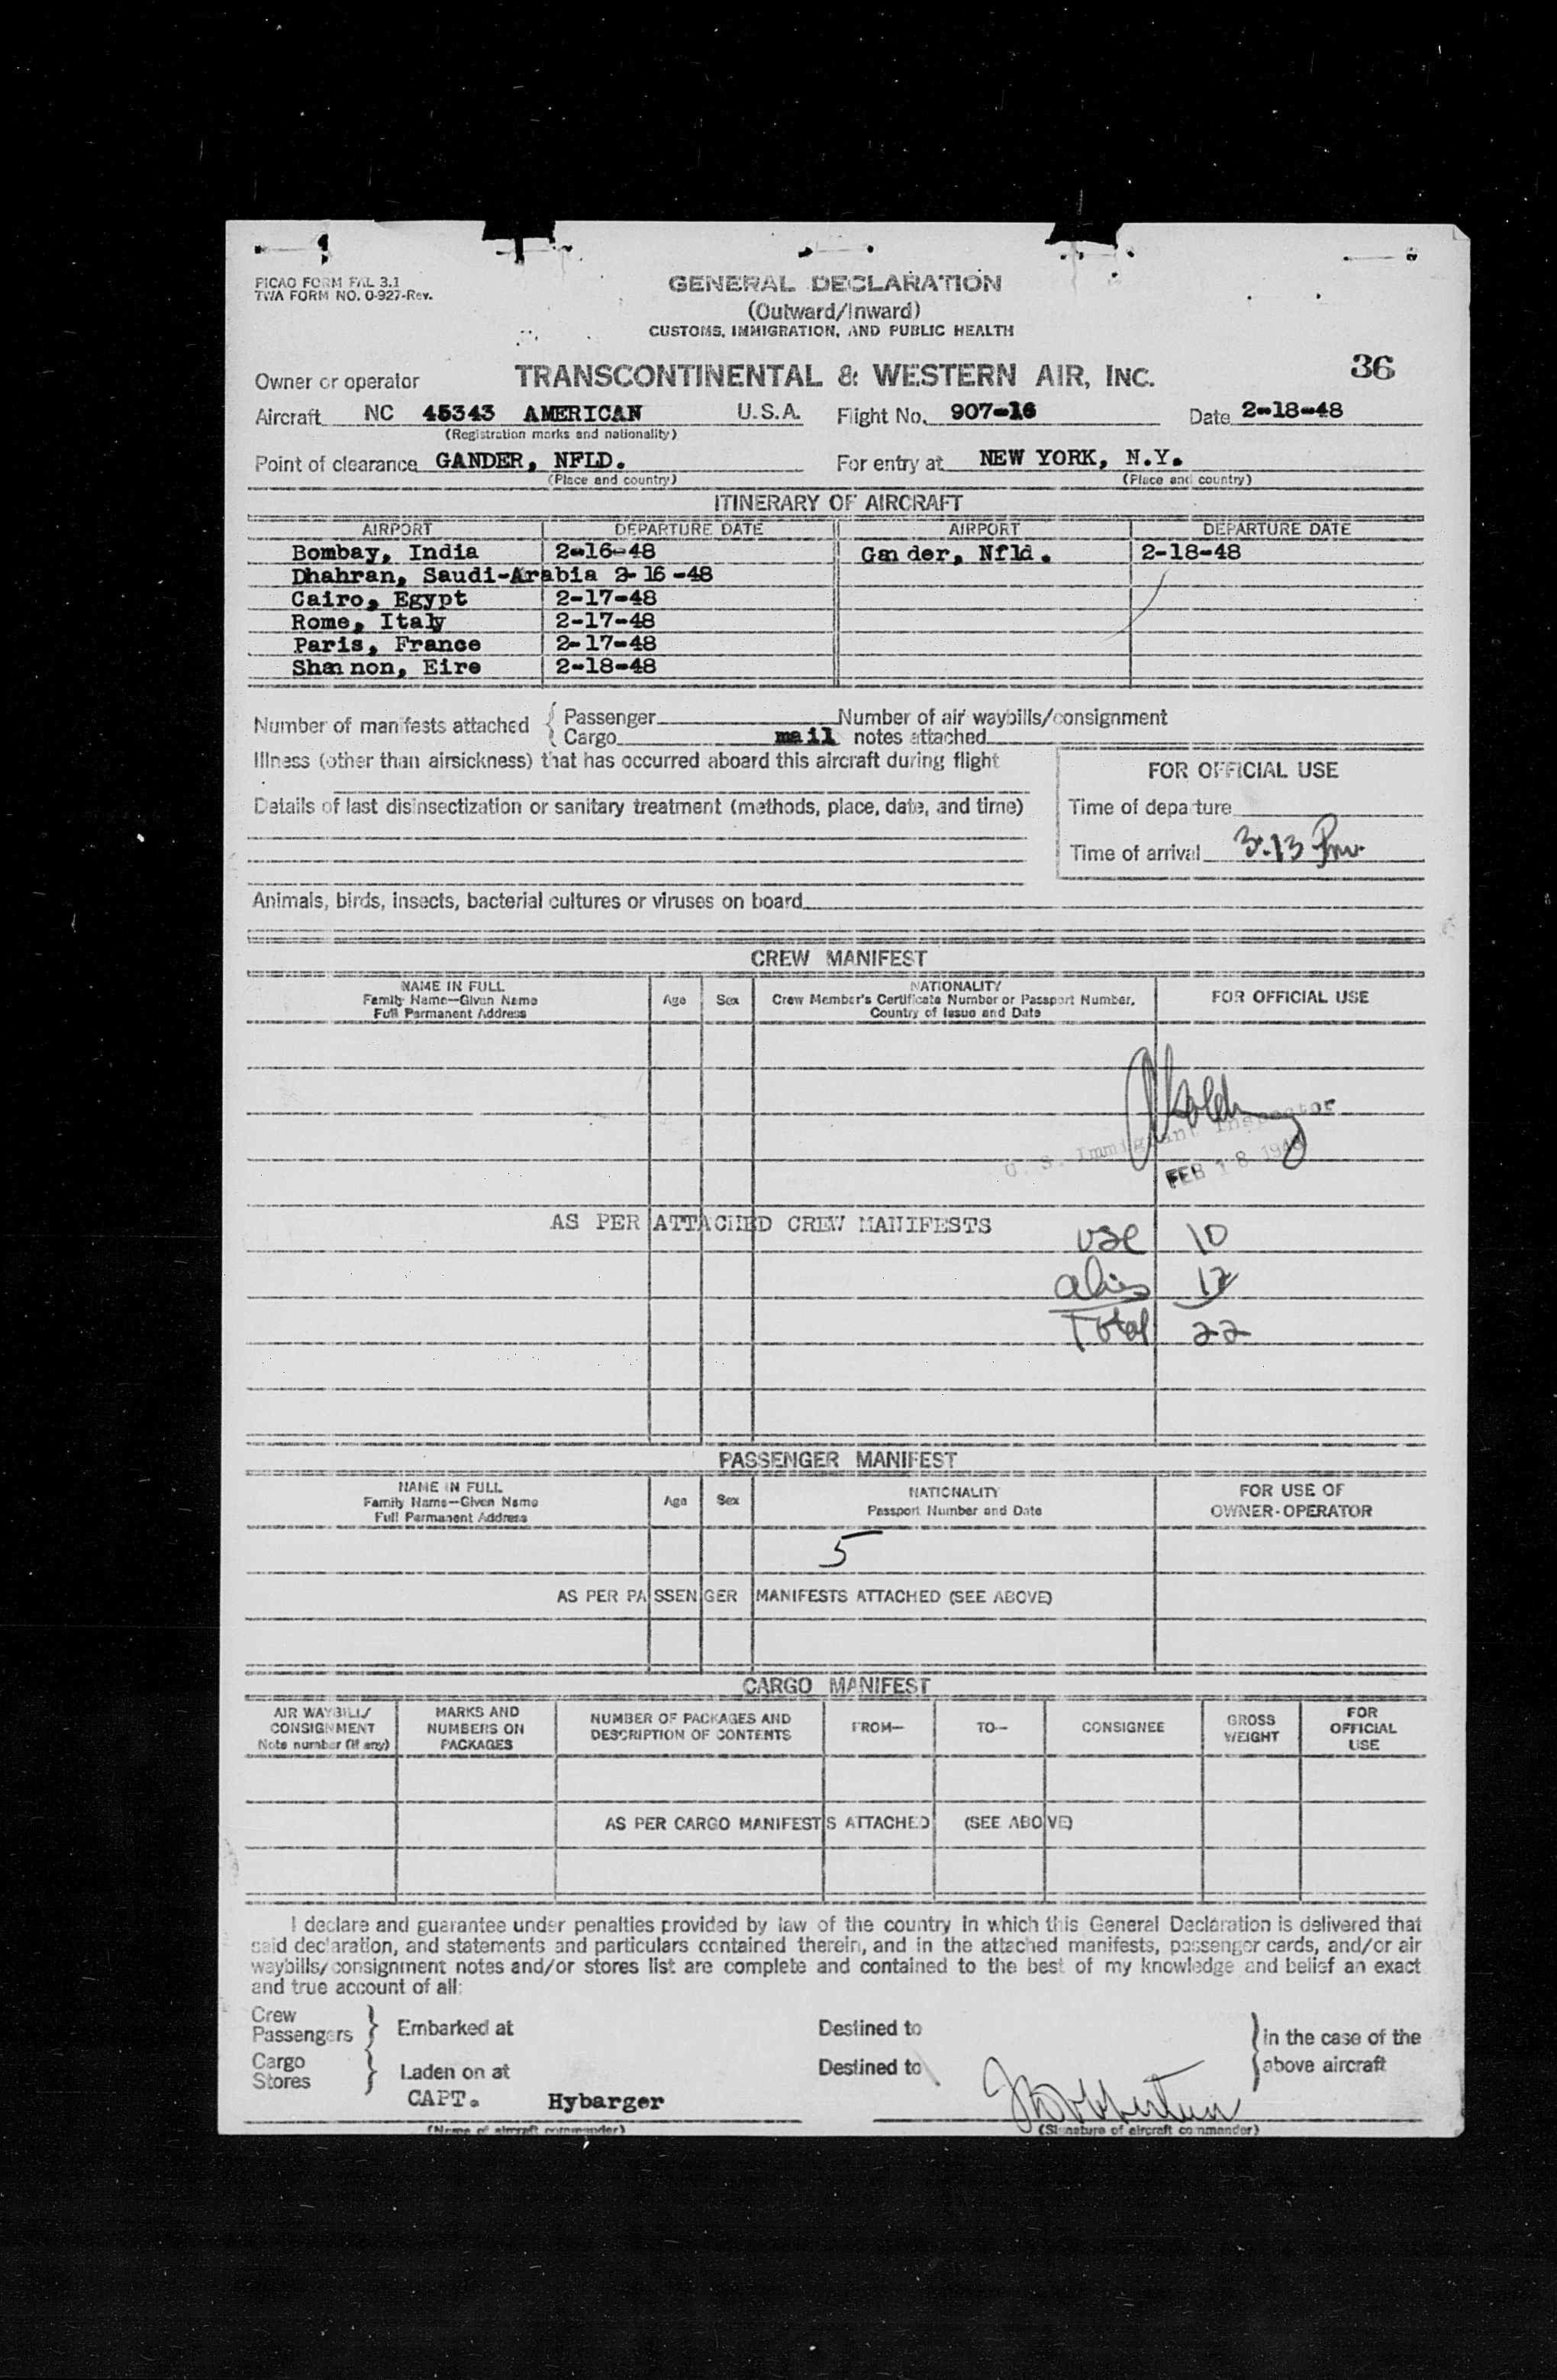 PICAO FORM FAL 3.1
TWA FORM NO. 0-927-Rev.
GENERAL DECLARATION
(Outward/Inward)
CUSTOMS, IMMIGRATION, AND PUBLIC HEALTH
36
Owner or operator TRANSCONTINENTAL & WESTERN AIR, INC.
Aircraft NC 45343 AMERICAN U.S.A. Flight No. 907-16 Date 2-18-48
(Registration marks and nationality)
Point of clearance GANDER, NFLD. For entry at NEW YORK, N.Y.
(Place and country) (Place and country)
ITINERARY OF AIRCRAFT
AIRPORT DEPARTURE DATE AIRPORT DEPARTURE DATE
Bombay, India 2-16-48 Gander, Nfld. 2-18-48
Dhahran, Saudi-Arabia 2-16-48
Cairo, Egypt 2-17-48
Rome, Italy 2-17-48
Paris, France 2-17-48
Shannon, Eire 2-18-48
Number of manifests attached { Passenger Number of air waybills/consignment
Cargo mail notes attached
Illness (other than airsickness) that has occurred aboard this aircraft during flight
FOR OFFICIAL USE
Details of last disinsectization or sanitary treatment (methods, place, date, and time)
Time of departure
Time of arrival 3.13 Pm.
Animals, birds, insects, bacterial cultures or viruses on board
CREW MANIFEST
NAME IN FULL
Family Name—Given Name
Full Permanent Address
Age Sex
NATIONALITY
Crew Member's Certificate Number or Passport Number,
Country of Issue and Date
FOR OFFICIAL USE
U. S. Immigrant Inspector
FEB 18 1948
AS PER ATTACHED CREW MANIFESTS
USC 10
alien 12
Total 22
PASSENGER MANIFEST
NAME IN FULL
Family Name—Given Name
Full Permanent Address
Age Sex
NATIONALITY
Passport Number and Date
FOR USE OF
OWNER-OPERATOR
5
AS PER PASSENGER MANIFESTS ATTACHED (SEE ABOVE)
CARGO MANIFEST
AIR WAYBILL/
CONSIGNMENT
Note number (if any)
MARKS AND
NUMBERS ON
PACKAGES
NUMBER OF PACKAGES AND
DESCRIPTION OF CONTENTS
FROM—
TO—
CONSIGNEE
GROSS
WEIGHT
FOR
OFFICIAL
USE
AS PER CARGO MANIFESTS ATTACHED (SEE ABOVE)
I declare and guarantee under penalties provided by law of the country in which this General Declaration is delivered that
said declaration, and statements and particulars contained therein, and in the attached manifests, passenger cards, and/or air
waybills/consignment notes and/or stores list are complete and contained to the best of my knowledge and belief an exact
and true account of all:
Crew
Passengers } Embarked at Destined to } in the case of the
Cargo
Stores } Laden on at Destined to above aircraft
CAPT. Hybarger
(Name of aircraft commander) (Signature of aircraft commander)